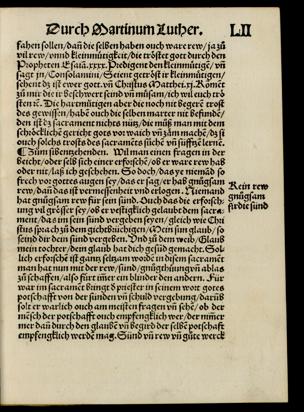 Durch Martinum Luther. LII
fahen sollen/ dañ die selben haben ouch ware rew/ ja zů
vil rew/ vnnd kleinmůtigkeit/ die tröstet gott durch den
Propheten Esaiã.xxxx. Predigent den kleinmůtigẽ/ vñ
sagt jn/ Consolamini/ Seient getröst ir kleinmůtigen/
sehent dz ist ewer gott. vñ Christus Matthei.xj. Kom̃ẽt
zů mir die ir beschwert seind vñ můsam/ ich wil euch trö
sten ꝛc. Die hartmůtigen aber die noch nit begerẽ trost
des gewissens/ habẽ ouch die selben marter nit befundẽ/
den ist dz sacrament nichts nütz/ die můß man mit dem
schröckliche gericht gots vor waich vñ zãm machẽ/ dz sÿ
ouch solchs trosts des sacramẽts sůchẽ vñ süfftzẽ lernẽ.
¶ Zům sibentzehenden. Wil man einen fragen in der
beicht/ oder selb sich einer erforschẽ/ ob er ware rew hab
oder nit/ laß ich geschehen. So doch/ das ye niemãd so
frech vor gottes augen sey/ das er sag/ er hab gnůgsam
rew/ dañ das ist vermessenheit vnd erlogen. Niemand
hat gnůgsam rew für sein sünd. Ouch das die erforsch-
ung vil grösser sey/ ob er vestigklich gelaubt dem sacra-
ment/ das im sein sünd vergeben seyen/ gleich wie Chri
stus sprach zů dem gichtbrüchigen/ Mein sun glaub/ so
seind dir dein sünd vergeben. Vnd zů dem weib/ Glaub
mein tochter/ dein glaub hat dich gesũd gemacht. Sol-
lich erforschẽ ist gantz seltzam worde in disem sacramẽt
man hat nun mit der rew/ sünd/ gnůgthůung vñ ablas
zů schaffen/ also fürt im̃er ein blinder den andern. Für
war im sacrament bringt ð priester in seinem wort gotes
potschafft von der sünden vñ schuld vergebung/ darũb
solt er warlich ouch am meistẽ fragẽ vñ sehẽ/ ob der
mẽsch der potschafft ouch empfengklich wer/ der nim̃er
mer dañ durch den glaubẽ vñ begird der selbẽ potschafft
empfengklich werdẽ mag. Sünd vñ rew vñ gůte werck
Kein rew
gnůgsam
für die sünd